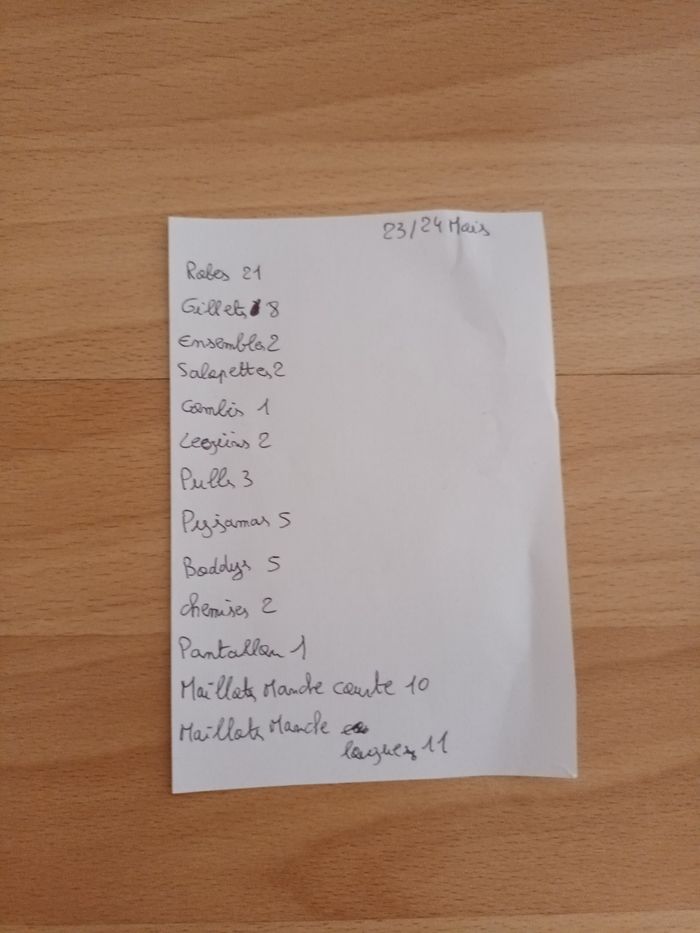 23/24 Mois
Robes 21
Gillets 8
Ensembles 2
Salopettes 2
Combis 1
Leggins 2
Pulls 3
Pyjamas 5
Boddys 5
chemises 2
Pantallon 1
Maillots Manche courte 10
Maillots Manche
longues 11